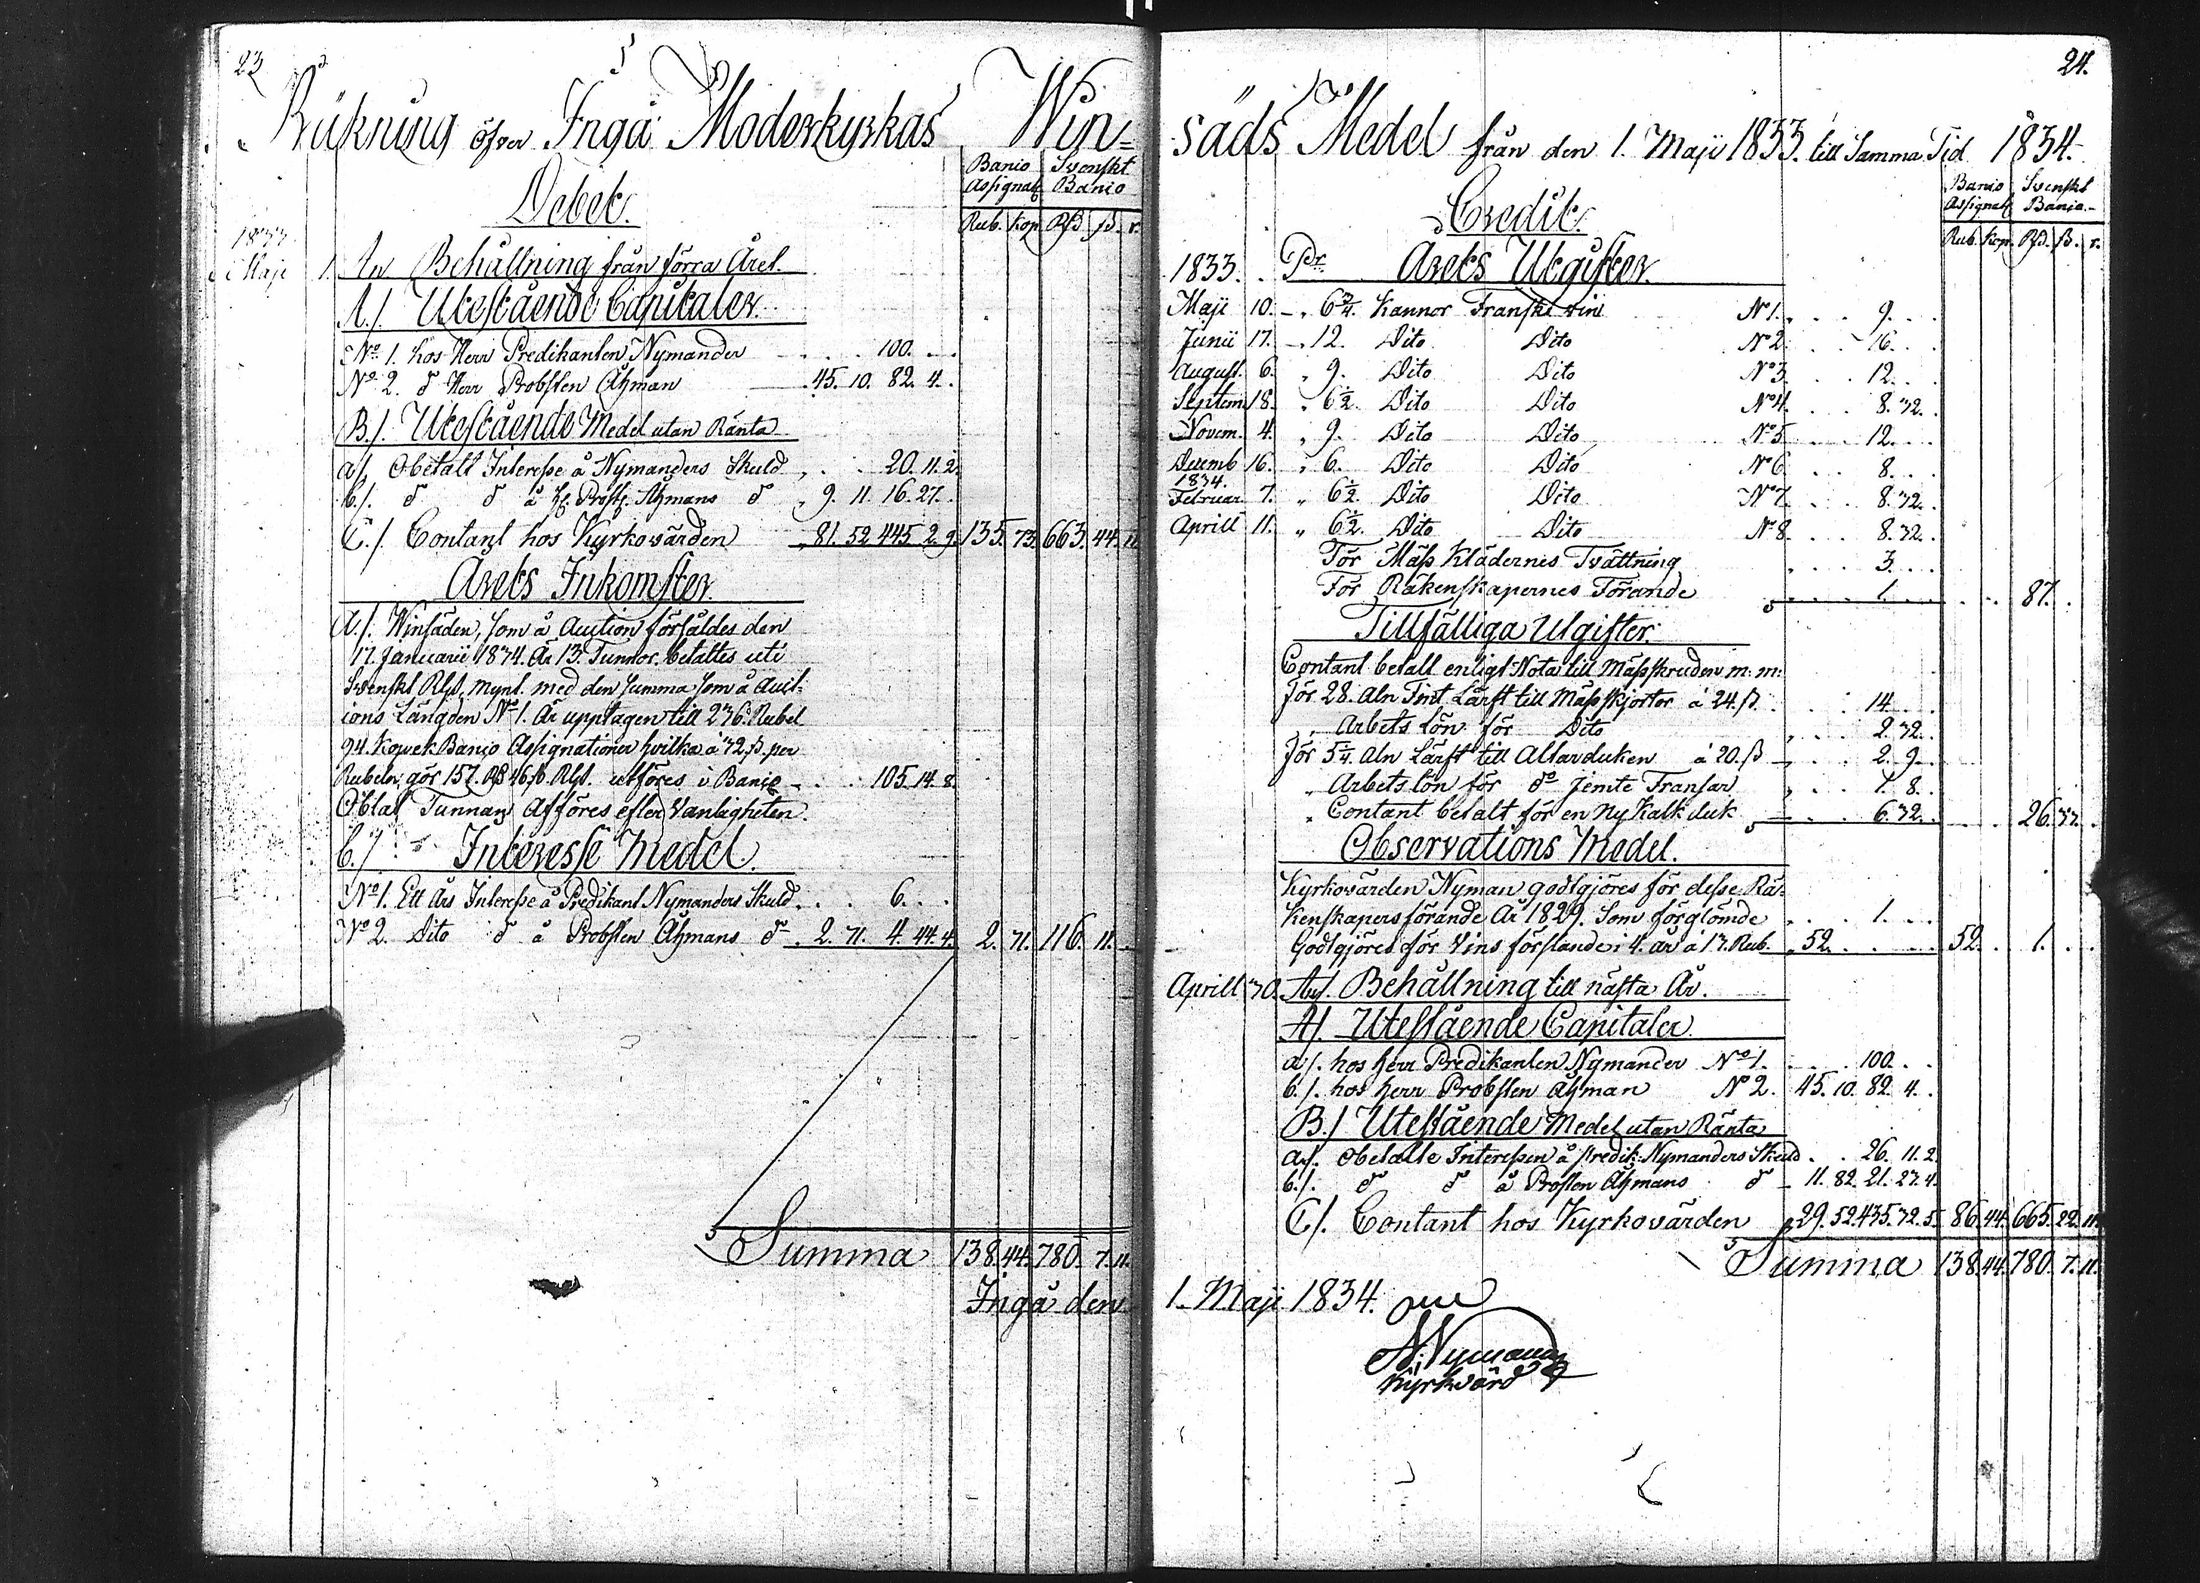 23
Räkning öfver Ingå Moderkyrkas Win=
Debet.
Banco Assignat. Svenskt Banco
Rub. Kop. Rd. ß. r.
1833
Maji 1. An Behållning från förra Året.
A./. Utestående Capitaler.
No. 1. hos Herr Predikanten Nymander . . . 100. . .
No. 2. do Herr Probsten Åhman 45. 10. 82. 4. .
B./. Utestående Medel utan Ränta
a/. Obetalt Interesse å Nymanders Skuld . . . 20. 11. 2.
b/. do do å H. Prosts. Åhmans do 9. 11. 16. 27. .
C./. Contant hos Kyrkovärden 81. 52 445 2. 9. 135. 73. 663. 44. 11.
Årets Inkomster
A./. Winsäden, som å Auction försåldes den
17. Januarii 1834. Är 13. Tunnor. betaltes uti
Svenskt Rgs. mynt. med den summa som å Auct=
ions Längden No 1. Är upptagen till 236. Rubel
94. Kopek Banco Assignationer hvilka à 32. ß. per
Rubeln, gör 157. Rd 46 ß. Rgs. utföres i Banco . . . 105. 14. 8.
Oblat Tunnan afföres efter Vanligheten.
b./. Interesse Medel.
No 1. Ett Års Interesse å Predikant Nymanders Skuld . . . 6. . .
No 2. Dito do å Probsten Åhmans do . 2. 71. 4. 44. 4. 2. 71. 116. 11. .
Summa 138. 44. 780. 7. 11.
Ingå den
24.
säds Medel från den 1. Maji 1833. till Samma Tid 1834.
Credit.
Banco Assignat. Svenskt Banco.
Rub. Kop. Rd. ß. r.
1833. Pr. Årets Utgifter.
Maji 10. " 6 3/4. Kannor Franskt vin No 1. . . . 9. . .
Junii 17. " 12. Dito Dito No 2. . . 16. . .
August. 6. " 9. Dito Dito No 3. . . 12. . .
Septem. 18. " 6 1/2. Dito Dito No 4. . . . 8. 32. .
Novem. 4. " 9. Dito Dito No 5. . . 12. . .
Decemb 16. " 6. Dito Dito No 6. . . 8. . .
1834.
Februar 7. " 6 1/2. Dito Dito No 7. . . . 8. 32. .
Aprill 11. " 6 1/2. Dito Dito No 8. . . 8. 32. .
För Mäss Klädernes Tvättning . . . 3. . .
För Räkenskapernes Förande . . . 1. . . . . 87. .
Tillfälliga Utgifter.
Contant betalt enligt Nota till Mässskruden m: m:
för 28. Aln Fint Lärft till Mässskjortor à 24. ß. . . 14. . .
" Arbets lön för Dito . . . 2. 32. .
för 5 1/4. Aln Lärft till Altarduken à 20. ß . . . 2. 9. .
" Arbets lön för do jemte Fransar . . . 1. 8. .
" Contant betalt för en ny Kalk duk . . . 6. 32. . . . 26. 33. .
Observations Medel.
Kyrkovärden Nyman godtgjöres för desse Rä=
kenskapers förande År 1829. Som förglömde . . . 1. . .
Godtgjöres för Vins förslande i 4. år à 13. Rub. 52. . . . 52. . 1. . .
Aprill 30. Af. Behållning till nästa År.
A/. Utestående Capitaler.
a/. hos herr Predikanten Nymander No 1. . . . 100. . .
b./. hos herr Probsten Åhman No 2. 45. 10. 82. 4. .
B./ Utestående Medel utan Ränta
a/. Obetalte Interessen å Predik. Nymanders Skuld . . 26. 11. 2.
b./. do do å Prosten Åhmans do 11. 82. 21. 23. 4.
C/. Contant hos Kyrkovärden 29. 52. 435. 32. 5. 86. 44. 665. 22. 11.
Summa 138. 44. 780. 7. 11.
1. Maji 1834.
Nyman
Kyrkvärd